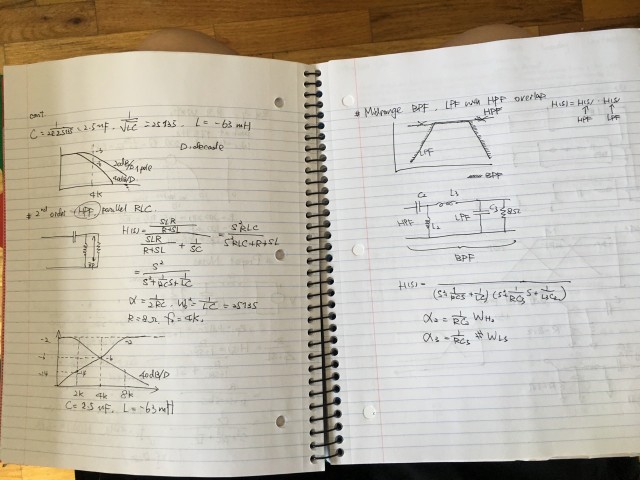 cont.
C = 1/(2R·25135) = 2.5 uF. 1/√LC = 25135. L = -63 mH
D. decade
-3
20dB/D, 1 pole
40dB/D
4k
# 2nd order HPF, parallel RLC.
H(s) = (SLR/(R+SL)) / (SLR/(R+SL) + 1/SC) = S²RLC/(S²RLC+R+SL)
= S²/(S²+(1/RC)S+1/LC)
α = 1/2RC. W₀² = 1/LC = 25135
R = 8Ω, f₀ = 4k.
-2
-2
-6
-6
40dB/D
2k 4k 8k
C = 2.5 uF. L = -63 mH
# Midrange BPF. LPF with HPF overlap
H(s) = H(s) · H(s)
HPF LPF
HPF
LPF
BPF
C₂ L₃
HPF L₂ LPF C₃ 8Ω
BPF
H(s) = / (S²+(1/RC₂)S+1/LC₂)(S²+(1/RC₃)S+1/L₃C₃)
α₂ = 1/RC₂ W_H₂
α₃ = 1/RC₃ # W_L₃